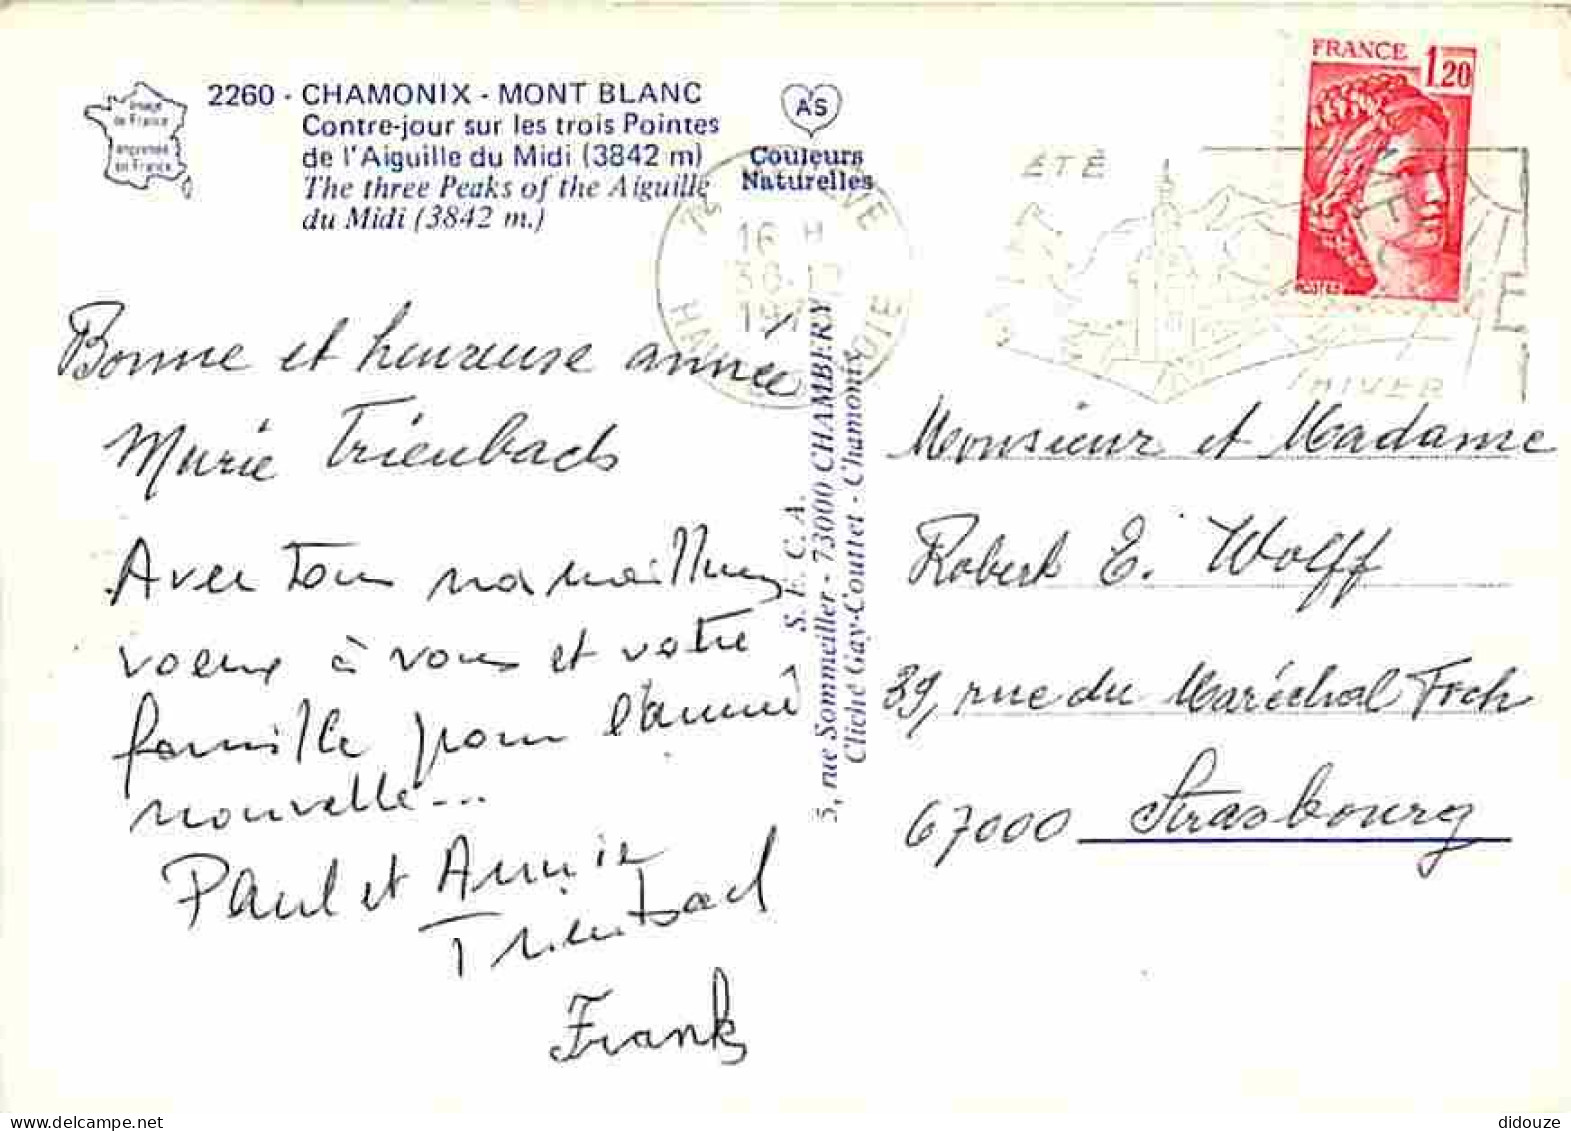 Image
de France
imprimée
en France
2260 - CHAMONIX - MONT BLANC
Contre-jour sur les trois Pointes
de l'Aiguille du Midi (3842 m)
The three Peaks of the Aiguille
du Midi (3842 m.)
AS
Couleurs
Naturelles
16 H
197
HAUTE SAVOIE
ETE
HIVER
FRANCE 1,20
Bonne et heureuse année
Marie Trienbach
Avec tous nos meilleurs
voeux à vous et votre
famille pour l'année
nouvelle...
Paul et Annie
Trienbach
Frank
S.E.C.A.
5, rue Sommeiller - 73000 CHAMBERY
Cliché Gay-Couttet - Chamonix
Monsieur et Madame
Robert E. Wolff
39, rue du Maréchal Foch
67000 Strasbourg
didouze